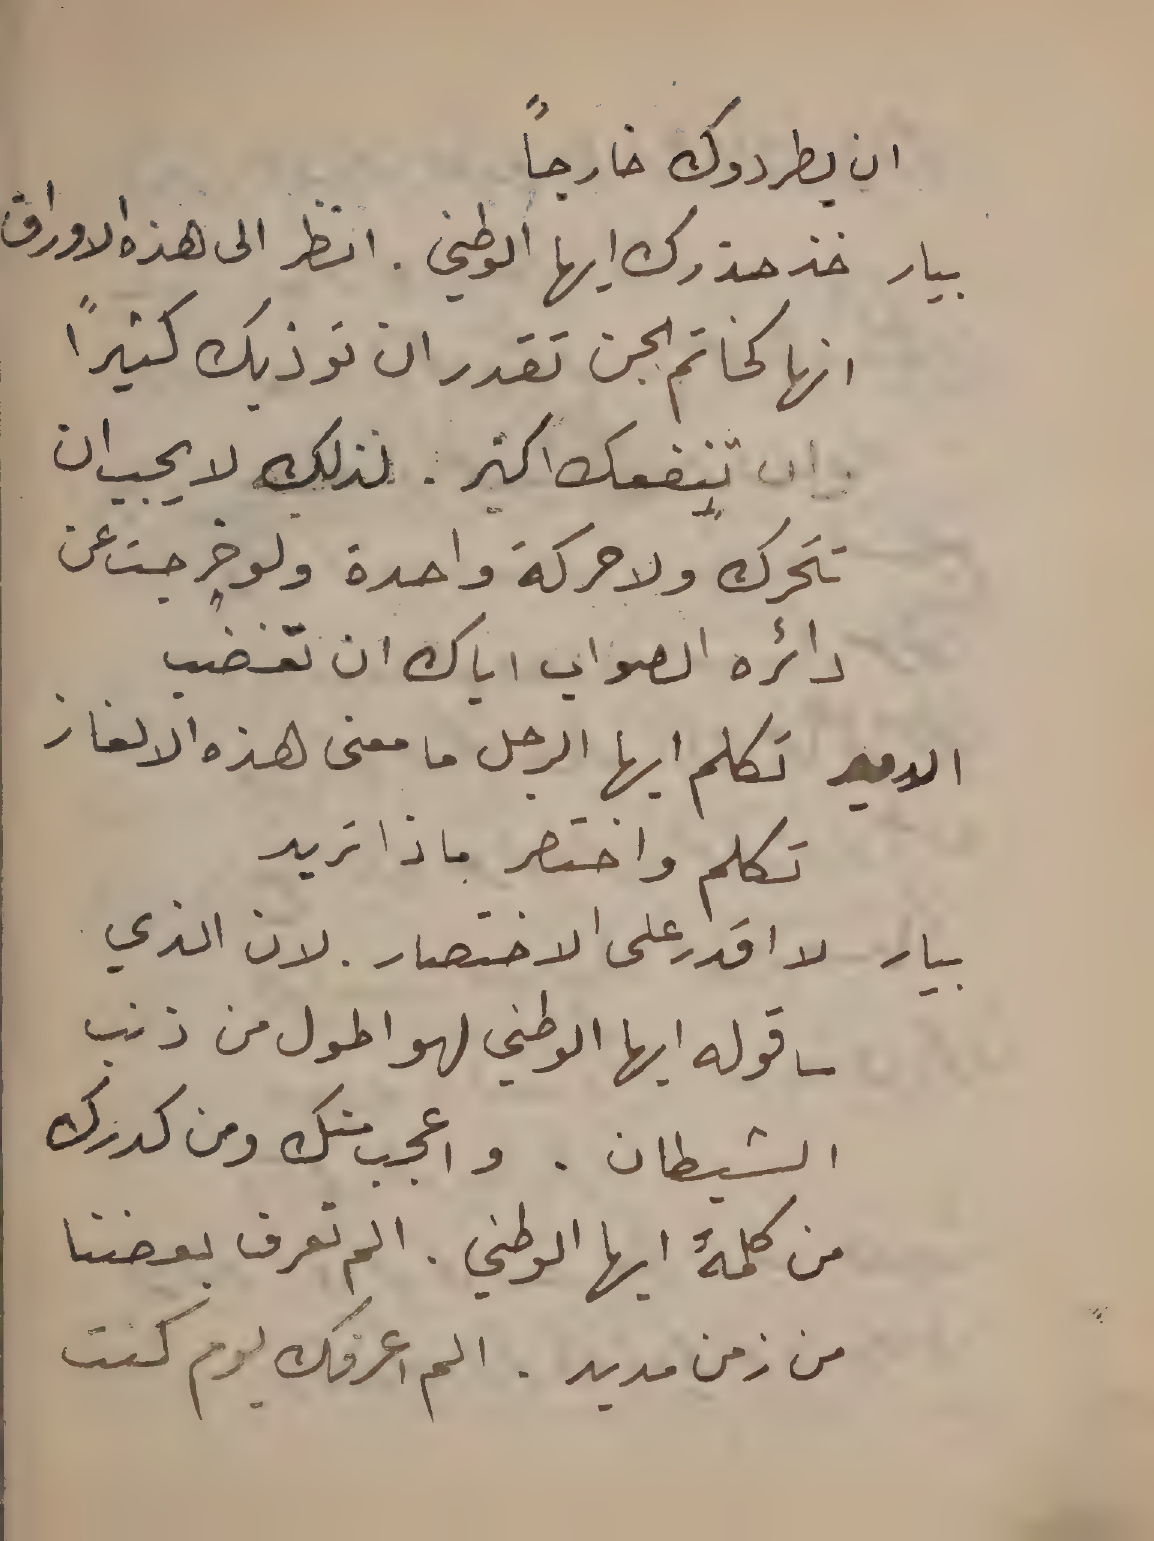 ان يطردوك خارجاً
بيار خذ حذرك ايها الوطني . انظر الى هذه الاوراق
انها كخاتم الجن تقدر ان توذيك كثيراً
وان تنفعك اكثر . لذلك لا يجب ان
تتحرك ولا حركة واحدة ولو خرجت عن
دائره الصواب اياك ان تغضب
الامير تكلم ايها الرجل ما معنى هذه الالغاز
تكلم واختصر ماذا تريد
بيار لا اقدر على الاختصار . لان الذي
ساقوله ايها الوطني لهو اطول من ذنب
الشيطان . واعجب منك ومن كدرك
من كلمة ايها الوطني . الم تعرف بعضنا
من زمن مديد . الم اعرفك يوم كنت